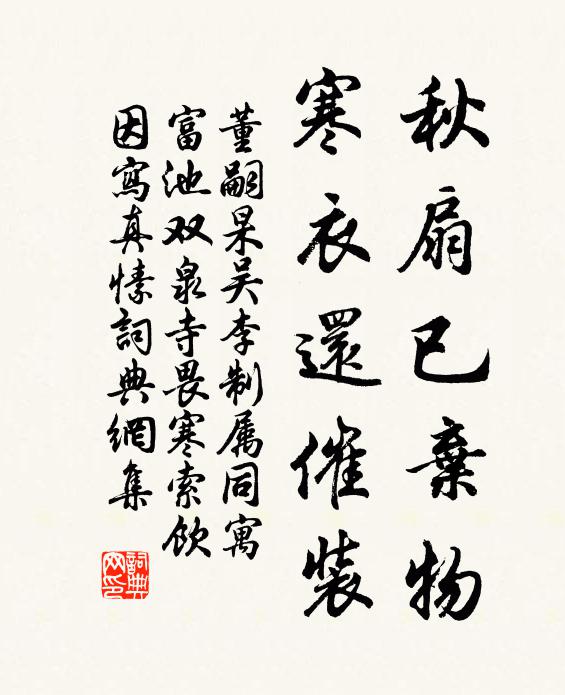 秋扇已棄物
寒衣還催裝
董嗣杲吴李制属同寓
富池双泉寺畏寒索飲
因寫真愫詞典網集
詞典網印